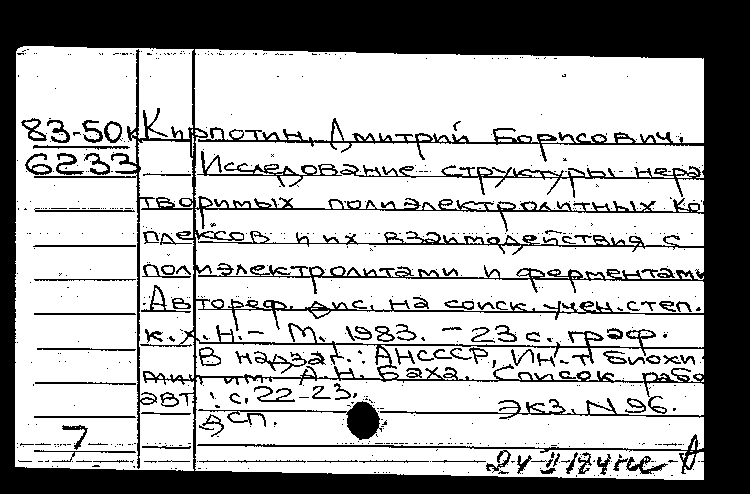 83-50к Кирпотин, Дмитрий Борисович.
6233 Исследование структуры нерас
творимых полиэлектролитных ко
плексов и их взаимодействия с
полиэлектролитами и ферментами
Автореф. дис. на соиск. учен. степ.
к. х. н. - М., 1983. - 23 с., граф.
В надзаг.: АН СССР, Ин-т биохи
мии им. А. Н. Баха. Список рабо
авт.: с. 22-23.
экз. N 96.
ДСП.
7
24 II 184